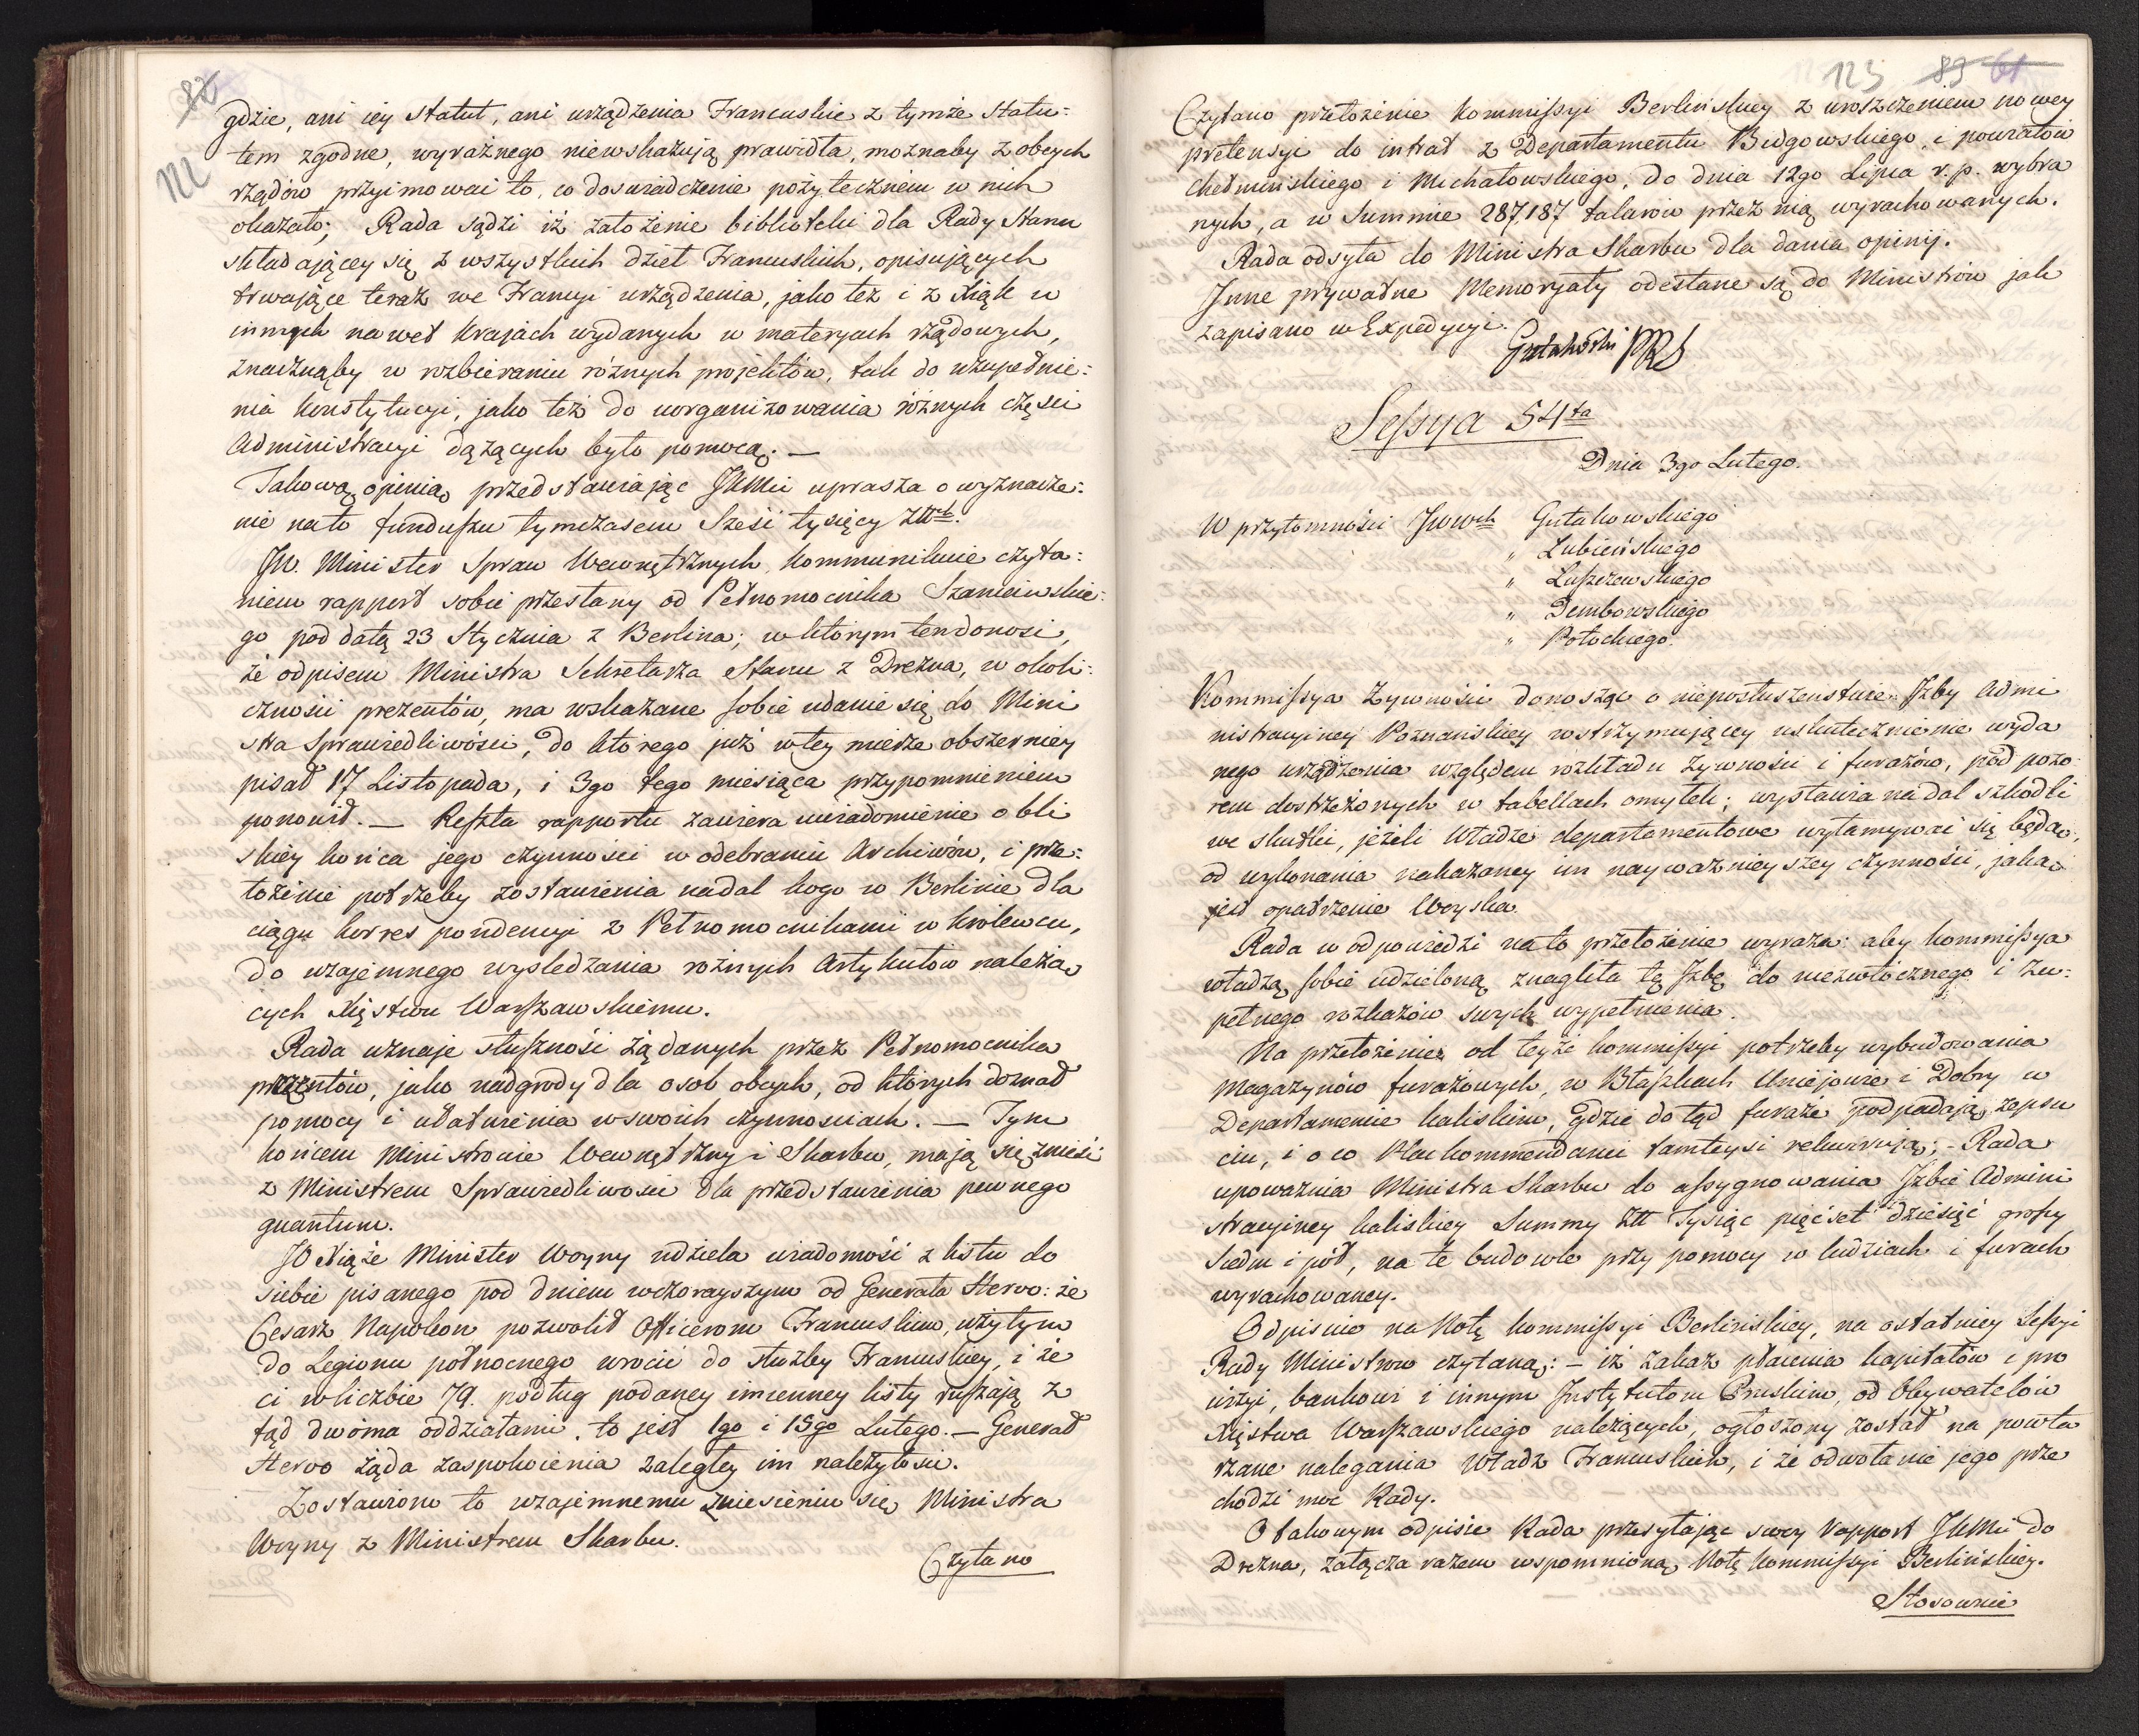 82
122
gdzie, ani iey Statut, ani urządzenia Francuskie z tymże Statu:
tem zgodne, wyraźnego niewskazują prawidła, możnaby z obcych
rządów przyimować to, co doswiadczenie pożytecznem w nich
okazało; Rada sądzi iż założenie biblioteki dla Rady Stanu
składającey się z wszystkich dzieł Francuskich, opisujących
trwające teraz we Francyi urządzenia, jako też i z Xiąk w
innych nawet krajach wydanych w materyach rządowych,
znacznąby w rozbieraniu różnych projektów, tak do uzupełnie:
nia konstytucyi, jako też do uorganizowania różnych części
Administracyi dążących było pomocą. —
Takową opinią przedstawiając JKMci uprasza o wyznacze:
nie na to funduszu tymczasem Sześć tysięcy Złt.
JW. Minister Spraw Wewnętrznych kommunikuie czyta:
niem rapport sobie przesłany od Pełnomocnika Szaniawskie:
go pod datą 23 Stycznia z Berlina; w którym ten donosi,
że odpisem Ministra Sekretarza Stanu z Drezna, w okoli:
czności prezentów, ma wskazane sobie udanie się do Mini
stra Sprawiedliwości, do którego już w tey mierze obszerniey
pisał 17 Listopada, i 3go tego miesiąca przypomnieniem
ponowił. — Reszta rapportu zawiera uwiadomienie o bli
skiey końca jego czynności w odebraniu Archiwów, i prze:
łożenie potrzeby zostawienia nadal kogo w Berlinie dla
ciągu korrespondencyi z Pełnomocnikami w Królewcu,
do wzajemnego wysledzania różnych Artykułów należą
cych Xięstwu Warszawskiemu.
Rada uznaje słuszność żądanych przez Pełnomocnika
prezentów, jako nadgrody dla osob obcych, od których doznał
pomocy i ułatwienia w swoich czynnościach. — Tym
końcem Ministrowie Wewnętrzny i Skarbu, mają się znieść
z Ministrem Sprawiedliwości dla przedstawienia pewnego
quantum.
JO Xiąże Minister Woyny udziela wiadomość z listu do
siebie pisanego pod dniem wczorayszym od Generała Hervo: że
Cesarz Napoleon pozwolił Officerom Francuskim, użytym
do Legionu północnego wrócić do służby Francuskiey, i że
ci w liczbie 79. podług podaney imienney listy ruszają z
tąd dwoma oddziałami, to jest 1go i 15go Lutego. — Generał
Hervo żąda zaspokoienia zaległey im należytości.
Zostawiono to wzajemnemu zniesieniu się Ministra
Woyny z Ministrem Skarbu.
Czytano
123 83 61
Czytano przełożenie Kommissyi Berlińskiey z uroszczeniem nowey
pretensyi do intrat z Departamentu Bidgowskiego, i powiatów
chełmińskiego i Michałowskiego, do dnia 12go Lipca r. p. wybra
nych, a w Summie 287,187 talarów przez nią wyrachowanych.
Rada odsyła do Ministra Skarbu dla dania opinij.
Inne prywatne Memoryały odesłane są do Ministrów jak
zapisano w Expedycyi.
Gutakowski PRS
Sessya 54ta
Dnia 3go Lutego.
W przytomności JWWch Gutakowskiego
" Łubieńskiego
" Łuszczewskiego
" Dembowskiego
" Potockiego.
Kommissya Żywności donosząc o nieposłuszeństwie Izby Admi
nistracyiney Poznańskiey wstrzymującey uskutecznienie wyda
nego urządzenia względem rozkładu żywności i furażów, pod pozo
rem dostrzeżonych w tabellach omyłek; wystawia nadal szkodli
we skutki, jeżeli Władze departamentowe wyłamywać się będą,
od wykonania nakazaney im nayważnieyszey czynności, jaką
jest opatrzenie Woyska.
Rada w odpowiedzi na to przełożenie wyraża: aby Kommissya
władzą sobie udzieloną znagliła tę Izbę do niezwłocznego i zu:
pełnego rozkazów swych wypełnienia.
Na przełożenie od teyże Kommissyi potrzeby wybudowania
Magazynów furażowych, w Błaszkach Uniejowie i Dobry w
Departamencie kaliskim, gdzie dotąd furaże podpadają zepsu
ciu, i o co Plackommendanci tamteysi rekwirują; - Rada
upoważnia Ministra Skarbu do assygnowania Izbie Admini
stracyiney kaliskiey Summy Złt Tysiąc pięćset dziesięć groszy
siedm i pół, na te budowle przy pomocy w ludziach i furach
wyrachowaney.
Odpisuie na Notę Kommissyi Berlińskiey, na ostatniey Sessyi
Rady Ministrów czytaną: - iż zakaz płacenia kapitałów i pro
wizyi, bankowi i innym Instytutom Pruskim, od Obywatelów
Xięstwa Warszawskiego należących, ogłoszony został na powta
rzane nalegania Władz Francuskich, i że odwołanie jego prze
chodzi moc Rady.
O takowym odpisie Rada przesyłając swóy Rapport JKMci do
Drezna, załącza razem wspomnioną Notę Kommissyi Berlińskiey.
Stosownie